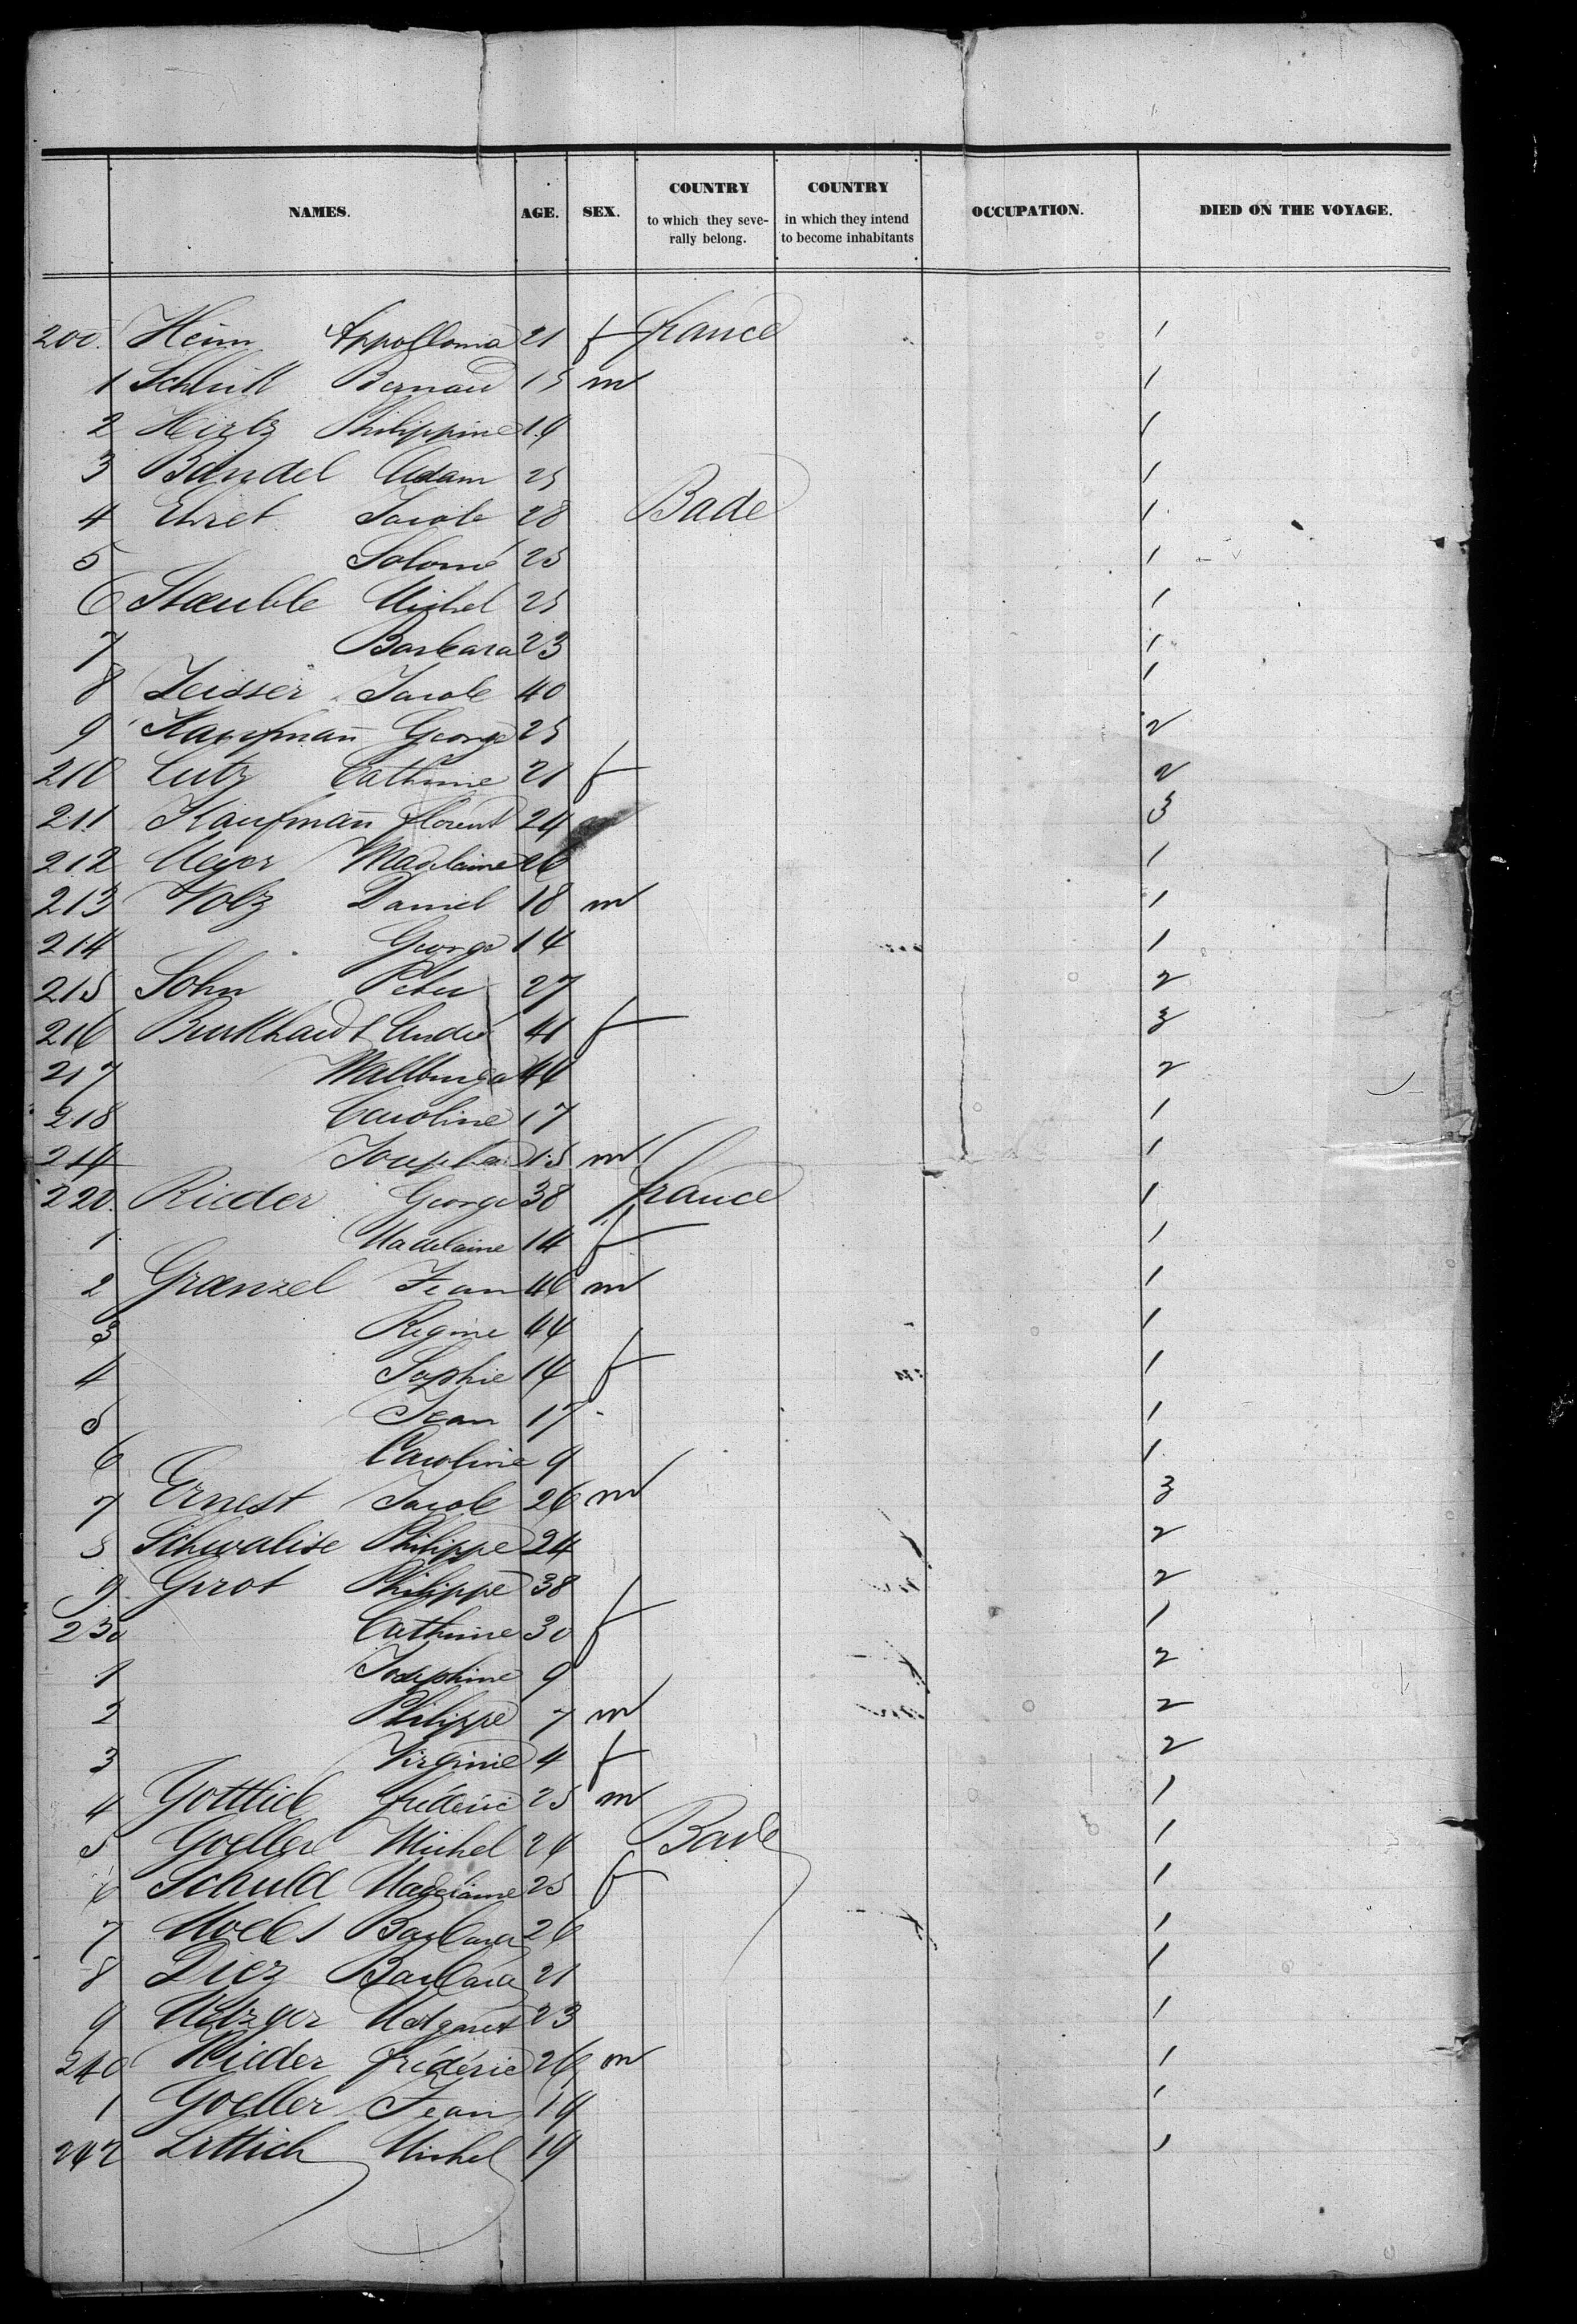 NAMES. AGE. SEX. COUNTRY to which they seve- rally belong. COUNTRY in which they intend to become inhabitants OCCUPATION. DIED ON THE VOYAGE.
200. Heim Appollonia 21 f france 1
1 Bernard 15 m 1
2 Hirtz Philippine 19 1
3 Bandel Adam 25 1
4 Ehret Jacob 28 Bade 1
5 Salomé 25 1
6 Staeuble Michel 25 1
7 Barbara 23 1
8 Zeisser Jacob 40 1
9 Kaufman̄ George 25 2
210 Lutz Cathrine 21 f 2
211 Kaufman̄ florent 24 3
212 Meyer Madelaine 26 1
213 Volz Daniel 18 m 1
214 George 14 1
215 Sohn Peter 27 2
216 Burkhardt André 41 f 3
217 Wallburga 44 2
218 Caroline 17 1
219 Joseph 15 m 1
220. Rieder George 38 france 1
1 Madelaine 14 f 1
2 Graenzel Jean 46 m 1
3 Regine 44 1
4 Sophie 14 f 1
5 Jean 17 - 1
6 Caroline 9 1
7 Ernest Jacob 26 m 3
8 Schwalise Philippe 24 2
9 Girot Philippe 38 2
230 Cathrine 30 f 1
1 Josephine 9 2
2 Philippe 7 m 2
3 Virginie 4 f 2
4 Gottlieb frédéric 25 m 1
5 Goeller Michel 24 Bade 1
6 Schuld Madelaine 25 f 1
7 Moebs Barbara 26 1
8 Diez Barbara 21 1
9 Metzger Margaret 23 1
240 Rieder frédéric 26 m 1
1 Goeller Jean 19 1
242 Littich Michel 19 1